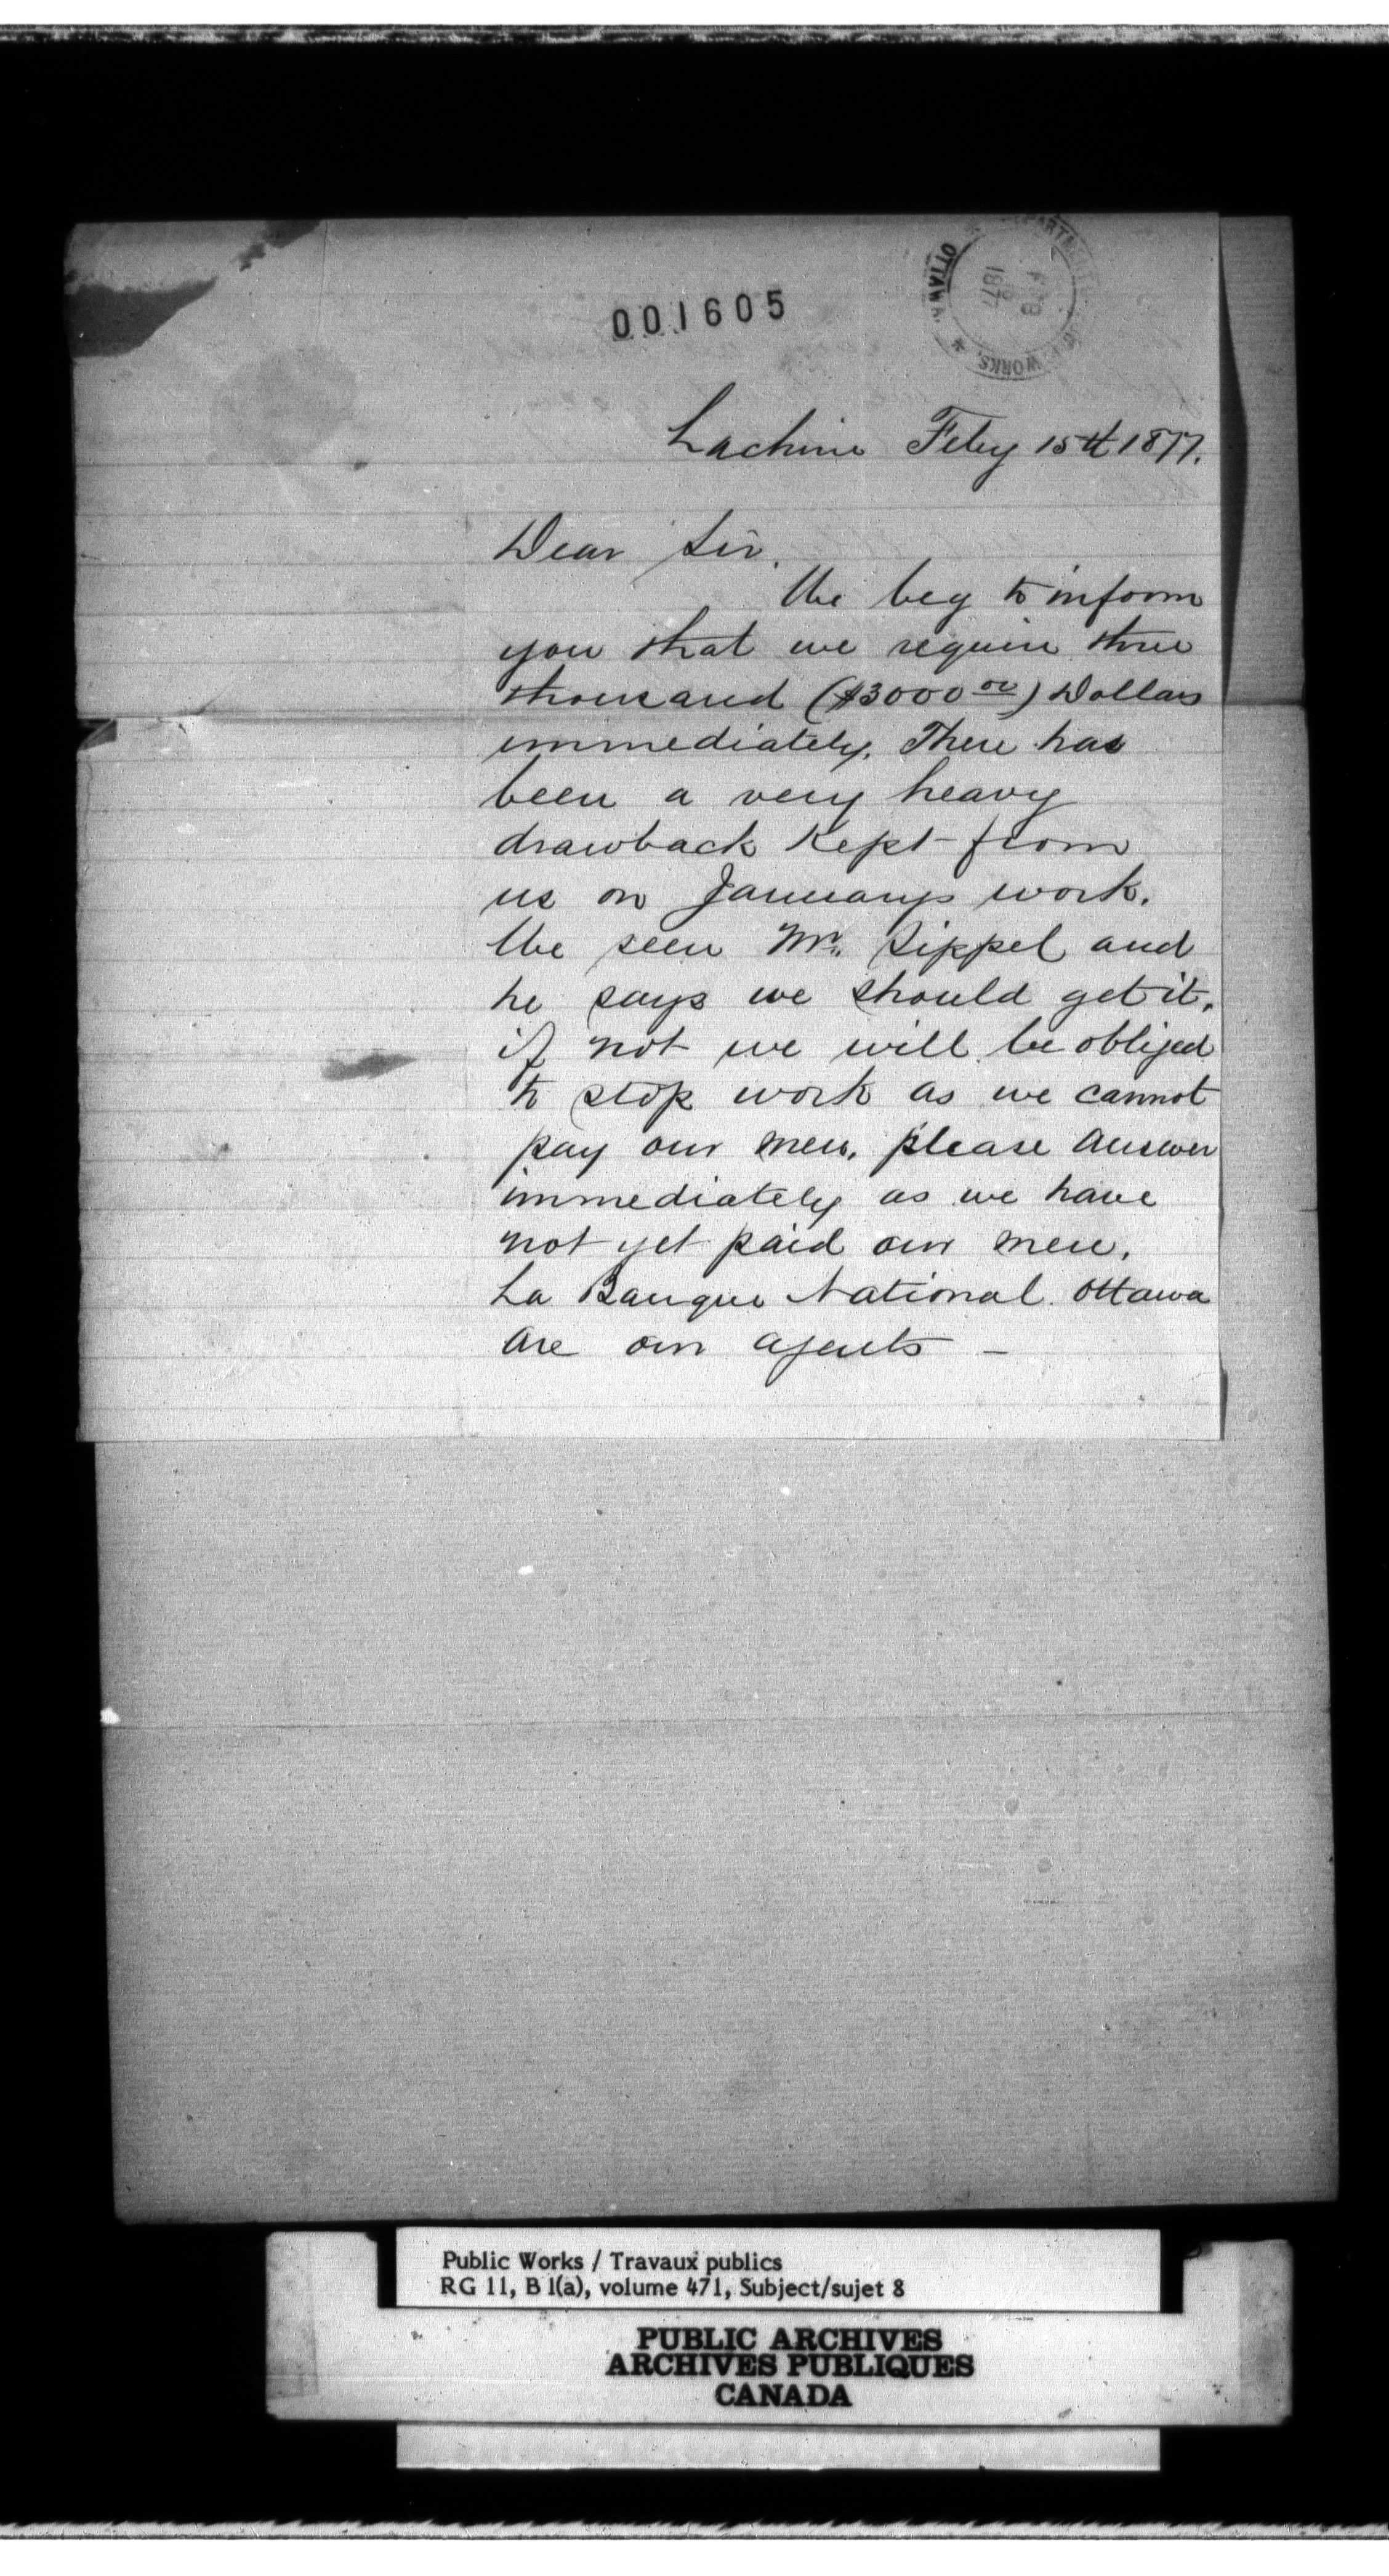 001605
DEPARTMENT WORKS. * OTTAWA
FEB
1877
Lachine Feby 15th 1877.
Dear Sir,
We beg to inform
you that we require three
thousand ($3000 00) Dollars
immediately. There has
been a very heavy
drawback kept from
us on Januarys work.
We seen Mr. Sippel and
he says we should get it,
if not we will be obliged
to stop work as we cannot
pay our men. please answer
immediately as we have
not yet paid our men.
La Banque National Ottawa
are our agents —
Public Works / Travaux publics
RG 11, B 1(a), volume 471, Subject/sujet 8
PUBLIC ARCHIVES
ARCHIVES PUBLIQUES
CANADA